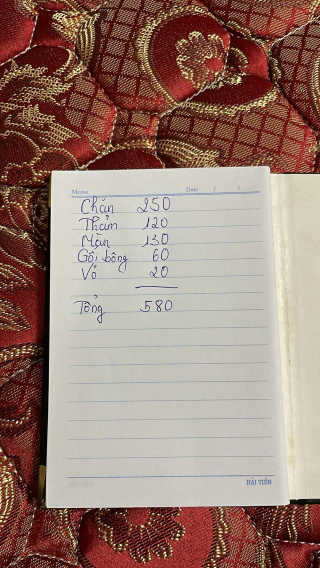 Memo Date / /
Chăn 250
Thảm 120
Màn 130
Gối bông 60
Vỏ 20
Tổng 580
HẢI TIẾN